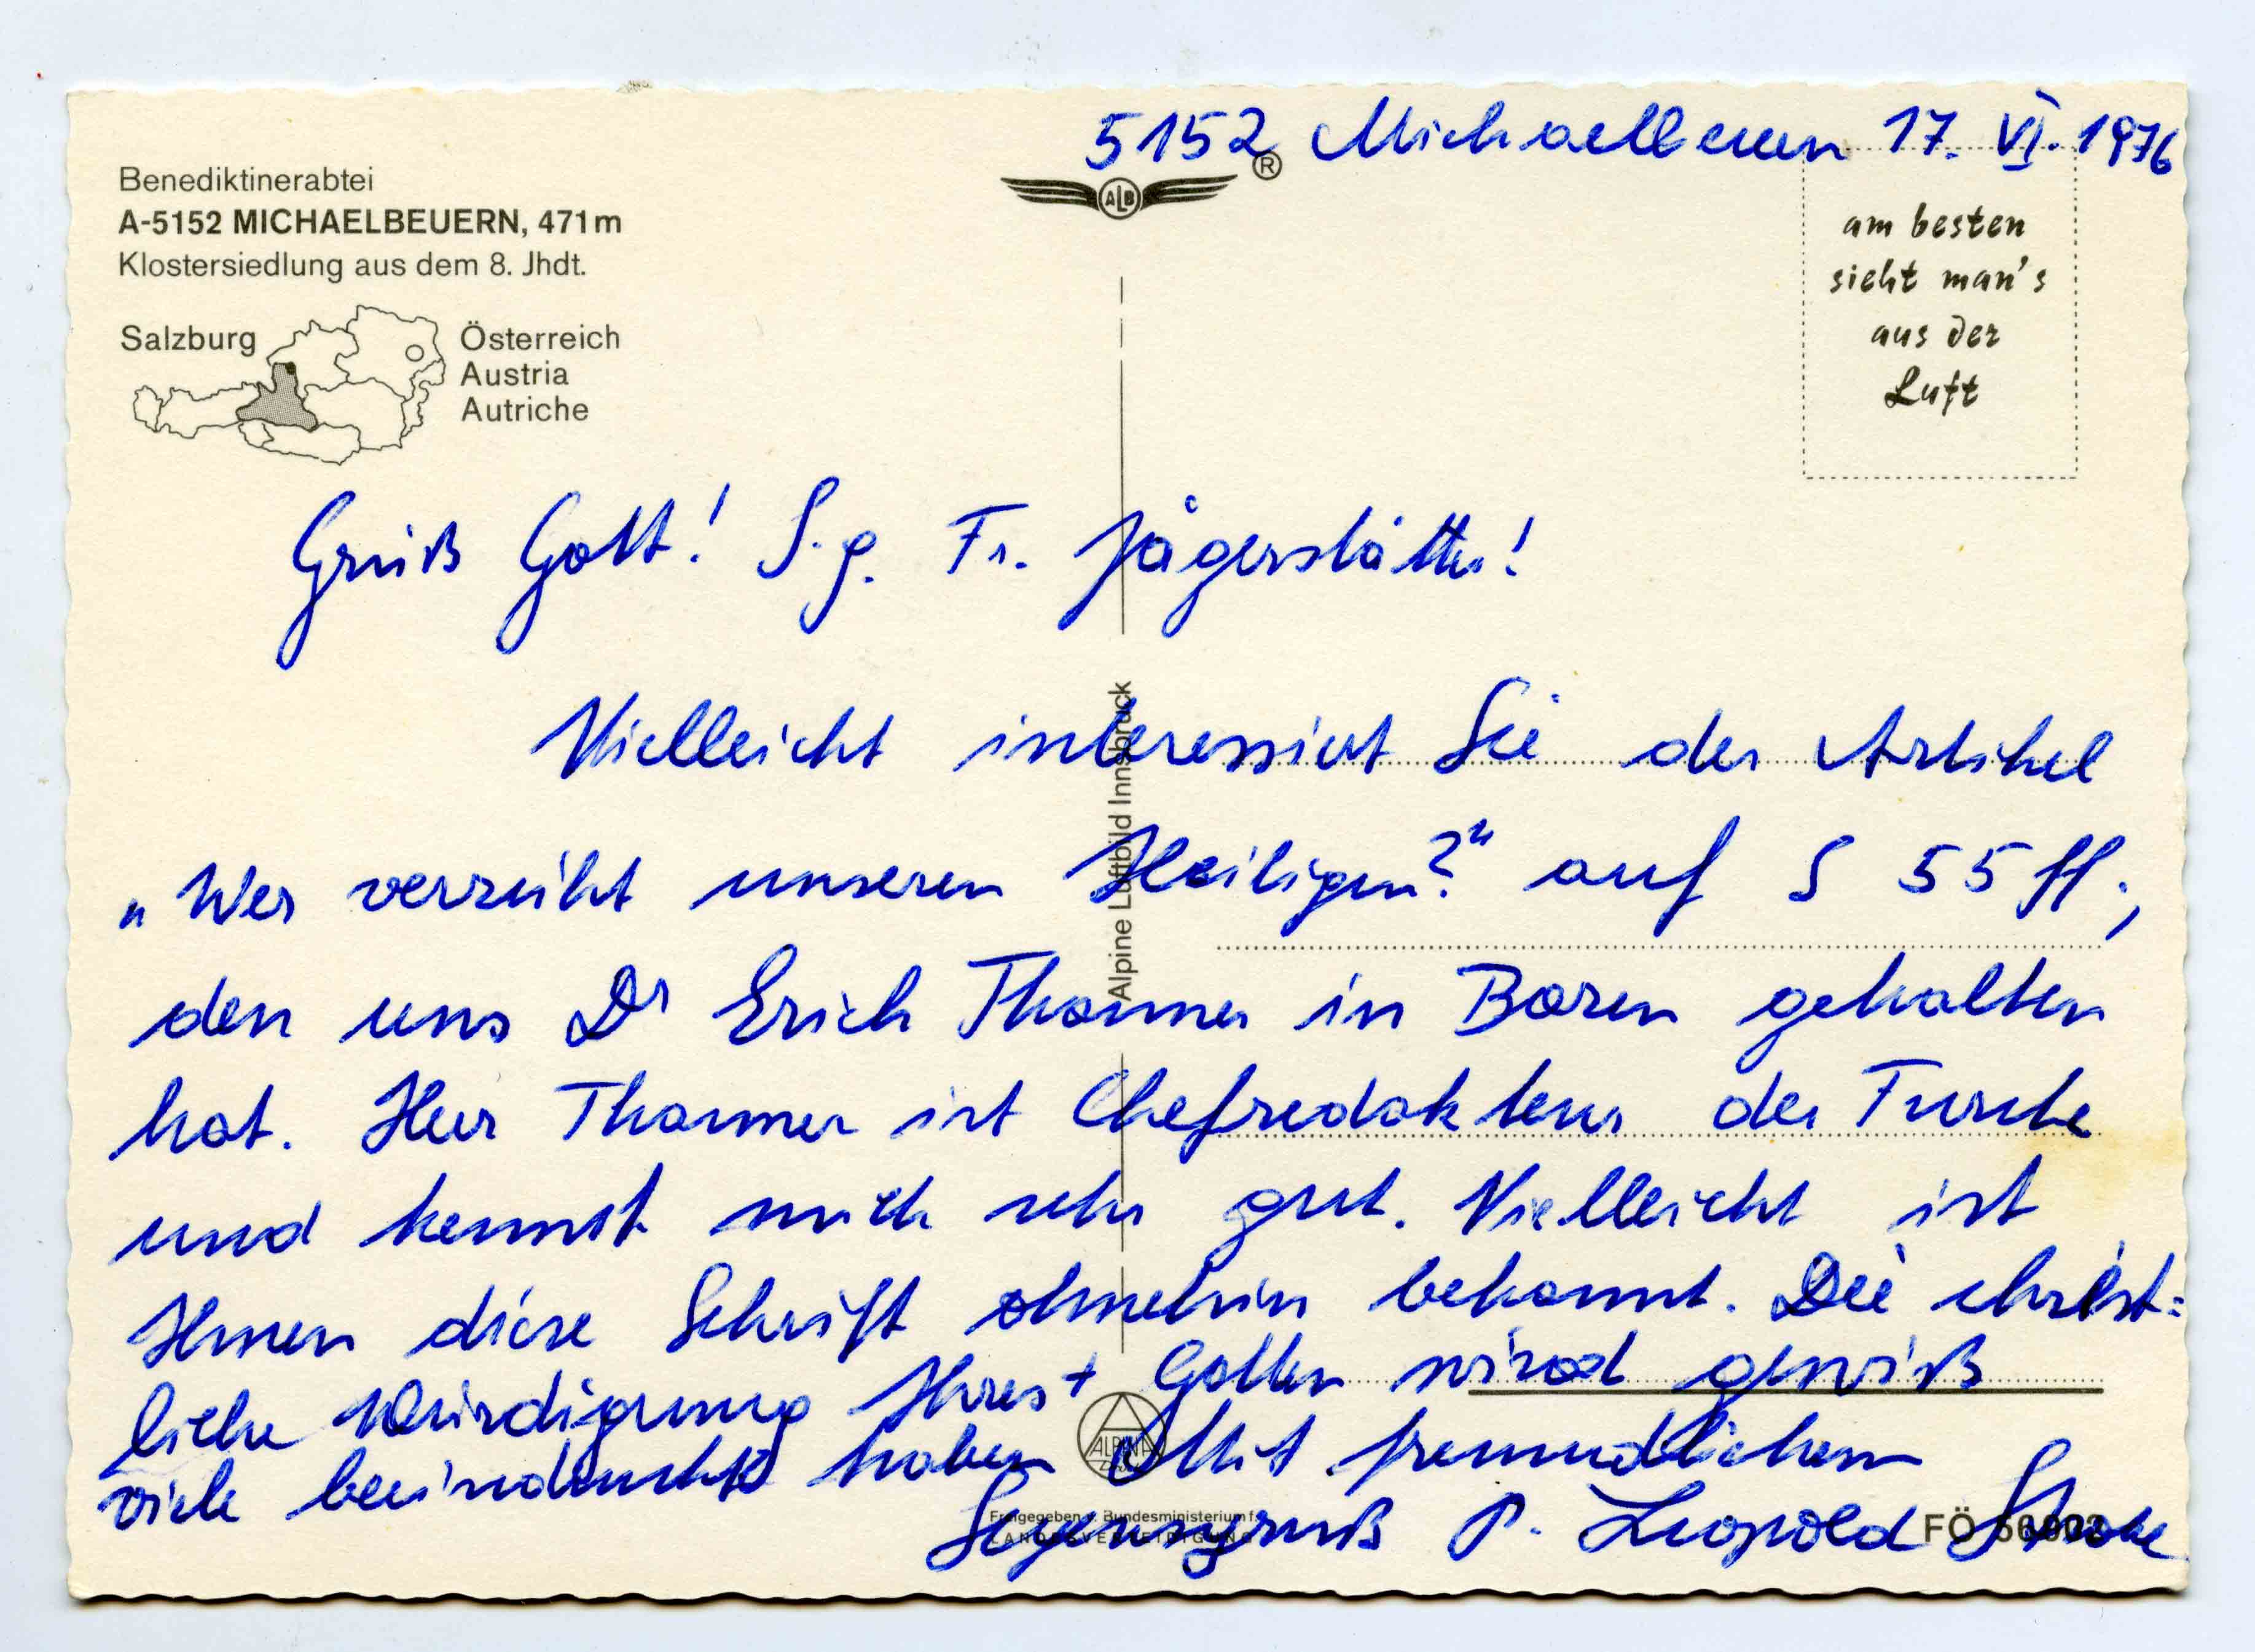 5152 Michaelbeuern 17. VI. 1976
Benediktinerabtei
A-5152 MICHAELBEUERN, 471 m
Klostersiedlung aus dem 8. Jhdt.
Salzburg
Österreich
Austria
Autriche
ALB ®
am besten
sieht man's
aus der
Luft
Grüß Gott! S. g. Fr. Jägerstätter!
Vielleicht interessiert Sie der Artikel
„Wer verzeiht unseren Heiligen?“ auf S 55 ff.,
den uns Dr Erich Thanner in Bozen gehalten
hat. Herr Thanner ist Chefredakteur der Furche
und kennt mich sehr gut. Vielleicht ist
Ihnen diese Schrift ohnehin bekannt. Die christ=
liche Würdigung Ihres + Gatten wird gewiß
viele beeindruckt haben Mit freundlichem
Segensgruß P. Leopold
Alpine Luftbild Innsbruck
ALPINA
Freigegeben v. Bundesministerium f.
LANDESVERTEIDIGUNG
FÖ